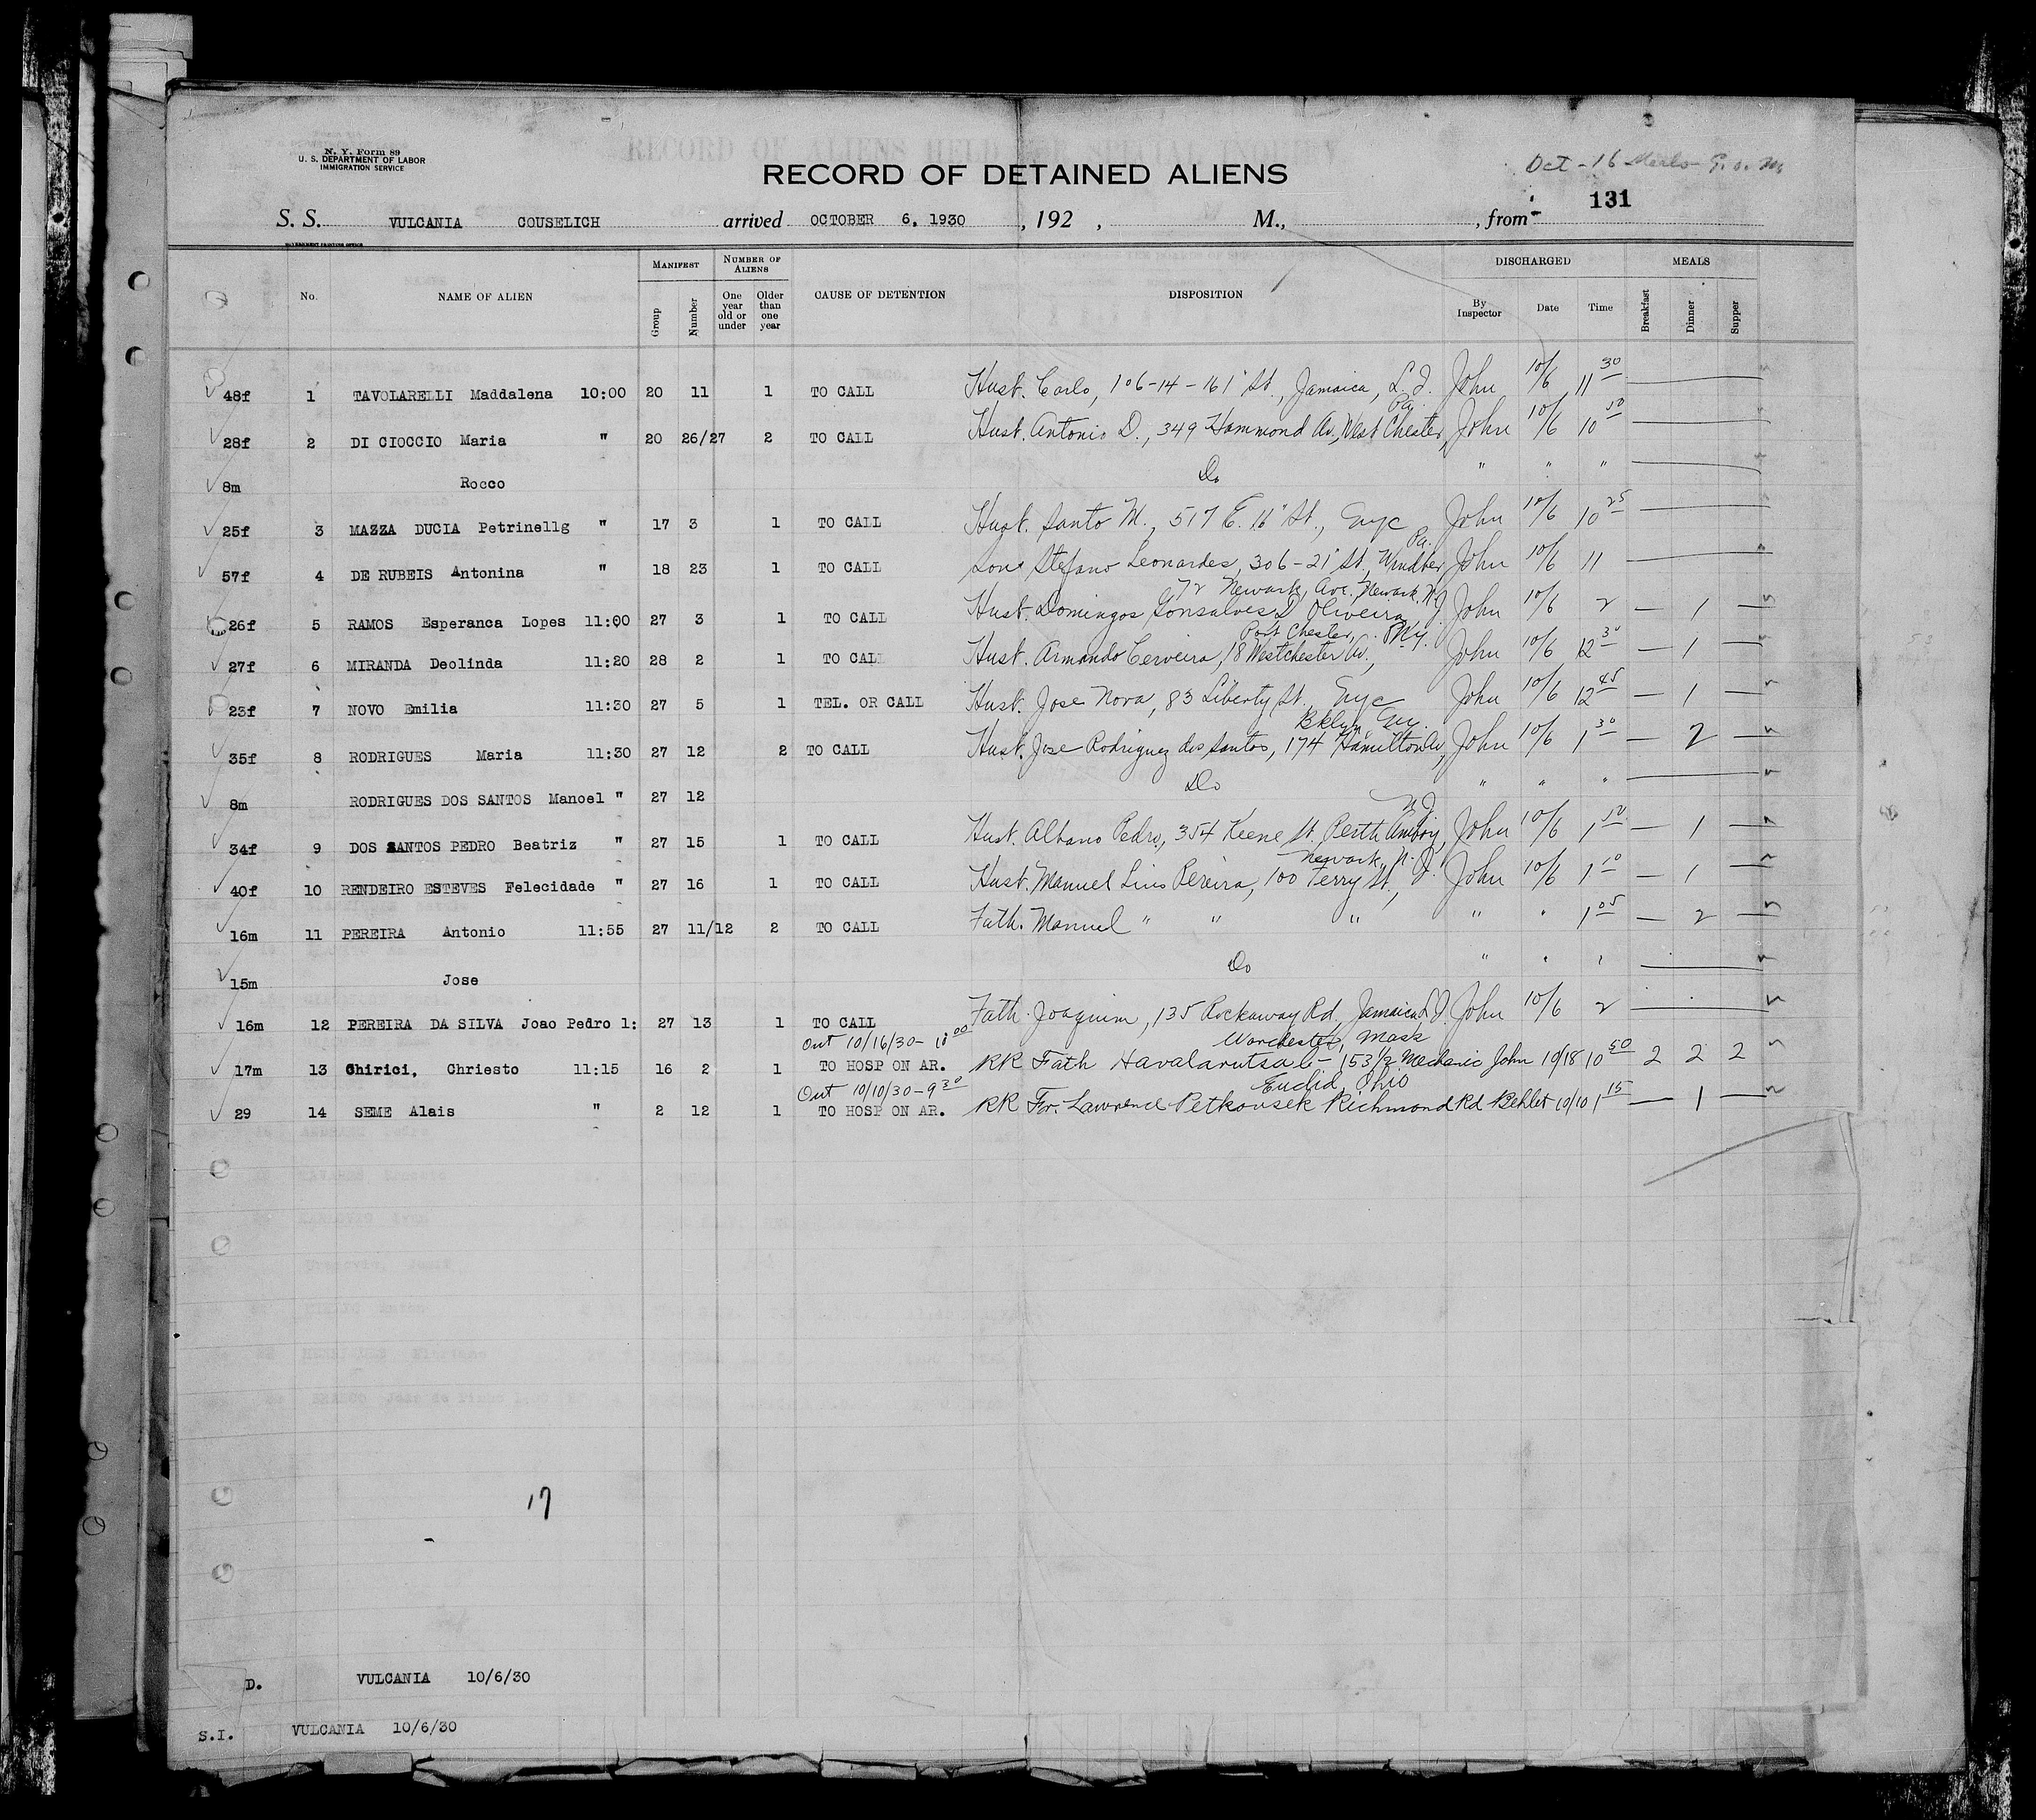 N. Y. Form 89
U. S. DEPARTMENT OF LABOR
IMMIGRATION SERVICE
RECORD OF DETAINED ALIENS
Oct - 16
131
S. S. VULCANIA COUSELICH arrived OCTOBER 6, 1930, 192 , M., , from
GOVERNMENT PRINTING OFFICE
No. NAME OF ALIEN MANIFEST Group Number NUMBER OF ALIENS One year old or under Older than one year CAUSE OF DETENTION DISPOSITION DISCHARGED By Inspector Date Time MEALS Breakfast Dinner Supper
48f 1 TAVOLARELLI Maddalena 10:00 20 11 1 TO CALL Hust. Carlo, 106-14-161" St., Jamaica, L.I. John 10/6 11 30
Pa.
28f 2 DI CIOCCIO Maria " 20 26/27 2 TO CALL Hust. Antonio D., 349 Hammond Av., West Chester, John 10/6 10 50
8m Rocco Do " " "
25f 3 MAZZA DUCIA Petrinellg " 17 3 1 TO CALL Hust. Santo M., 517 E. 16" St., Nyc John 10/6 10 25
Pa.
57f 4 DE RUBEIS Antonina " 18 23 1 TO CALL Son Stefano Leonardes, 306-21" St., Windber John 10/6 11
72 Newark Ave., Newark, N.J.
26f 5 RAMOS Esperanca Lopes 11:00 27 3 1 TO CALL Hust. Domingos Gonsalves D Oliveira John 10/6 2 — 1 —
Port Chester, Ny.
27f 6 MIRANDA Deolinda 11:20 28 2 1 TO CALL Hust. Armando Cerveira, 18 Westchester Av., John 10/6 12 30 — 1 —
23f 7 NOVO Emilia 11:30 27 5 1 TEL. OR CALL Hust. Jose Nova, 83 Liberty St., Nyc John 10/6 12 45 — 1 —
Bklyn, Ny.
35f 8 RODRIGUES Maria 11:30 27 12 2 TO CALL Hust. Jose Rodriguez dos Santos, 174 Hamilton Av, John 10/6 1 30 — 2 —
8m RODRIGUES DOS SANTOS Manoel " 27 12 Do " " "
N.J.
34f 9 DOS SANTOS PEDRO Beatriz " 27 15 1 TO CALL Hust. Albano Pedro, 354 Keene St. Perth Amboy, John 10/6 1 50 — 1 —
Newark, N.J.
40f 10 RENDEIRO ESTEVES Felecidade " 27 16 1 TO CALL Hust. Manuel Luis Pereira, 100 Ferry St., John 10/6 1 10 — 1 —
16m 11 PEREIRA Antonio 11:55 27 11/12 2 TO CALL Fath. Manuel " " " " " 1 05 — 2 —
15m Jose Do " " "
16m 12 PEREIRA DA SILVA Joao Pedro 1: 27 13 1 TO CALL Fath. Joaquim, 135 Rockaway Rd, Jamaica L.I. John 10/6 2
Out 10/16/30- 10 00 Worchester, Mass
17m 13 Chirici, Chriesto 11:15 16 2 1 TO HOSP ON AR. RR Fath - 153 1/2 Mechanic John 10/18 10 50 2 2 2
Out 10/10/30-9 30 Euclid, Ohio
29 14 SEME Alais " 2 12 1 TO HOSP ON AR. RR Fr. Lawrence Petkovsek Richmond Rd 10/10 1 15 — 1 —
17
D. VULCANIA 10/6/30
S.I. VULCANIA 10/6/30